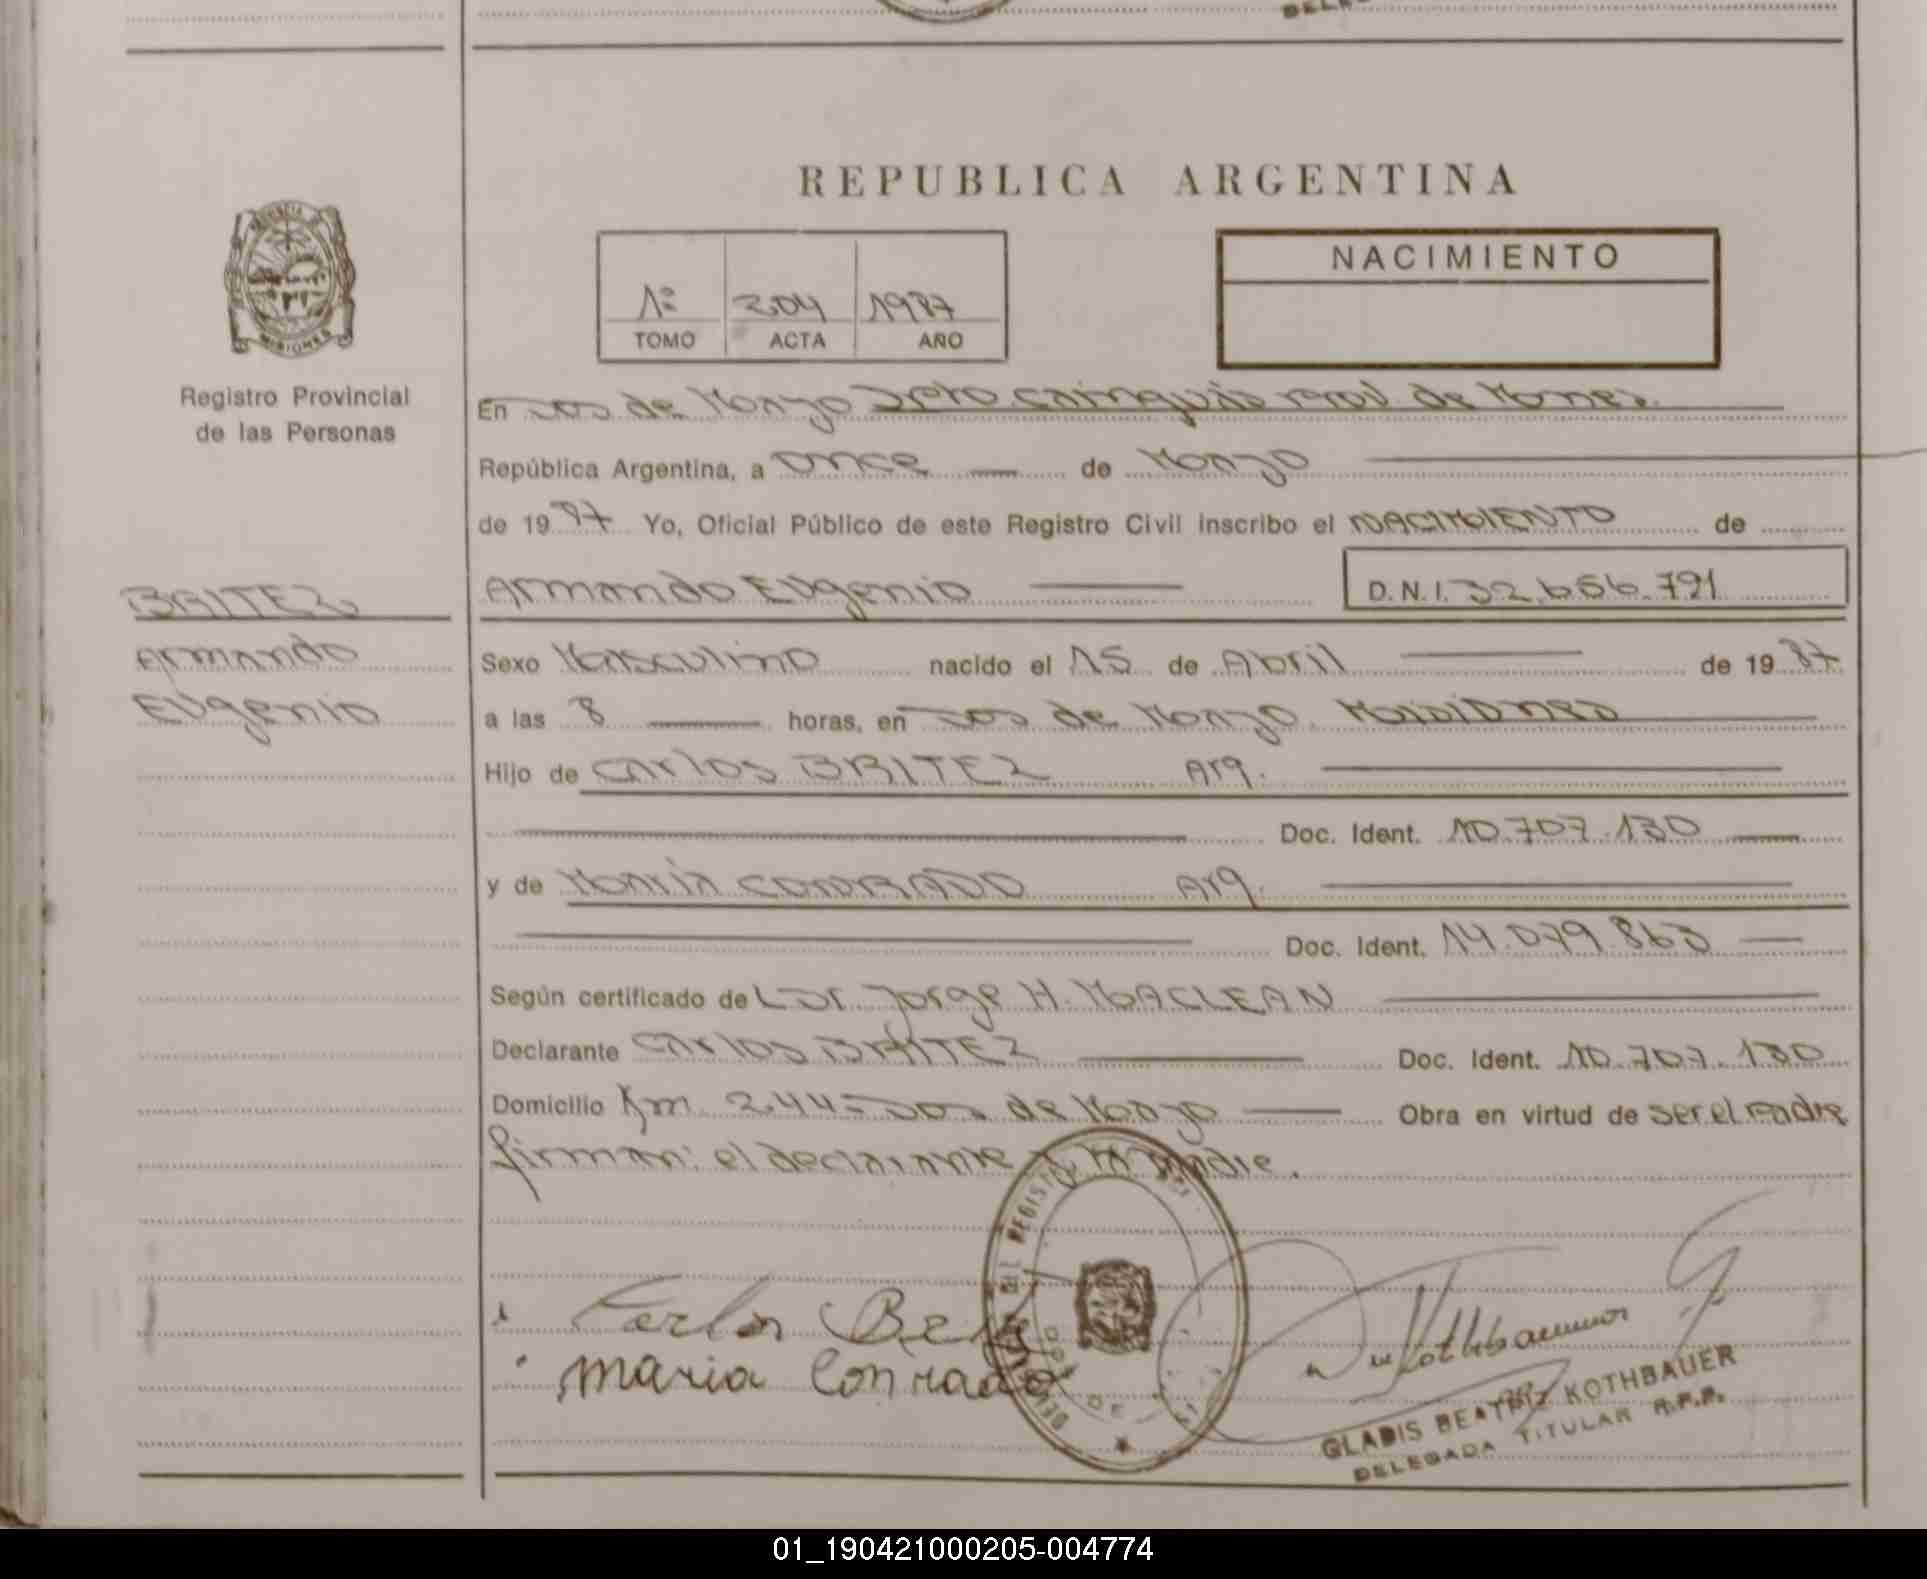 REPUBLICA ARGENTINA
PROVINCIA DE
MISIONES
Registro Provincial
de las Personas
1º 204 1987
TOMO ACTA AÑO
NACIMIENTO
En Dos de Mayo Dpto Cainguás
República Argentina, a once de Mayo
de 1987 Yo, Oficial Público de este Registro Civil inscribo el NACIMIENTO de
BRITEZ
Armando
Eugenio
Armando Eugenio D.N.I. 32.656.791
Sexo Masculino nacido el 15 de Abril de 1987
a las 8 horas, en Dos de Mayo. Misiones
Hijo de Carlos BRITEZ Arg.
Doc. Ident. 10.707.130
y de María CONRADO Arg.
Doc. Ident. 14.079.863
Según certificado de L Dr. Jorge H. MACLEAN
Declarante Carlos BRITEZ Doc. Ident. 10.707.130
Domicilio Km. 244 Dos de Mayo Obra en virtud de ser el Padre
firman: el declarante y la madre.
Carlos
maria Conrado
Kothbauer
GLADIS BEATRIZ KOTHBAUER
DELEGADA TITULAR R.P.P.
01_190421000205-004774